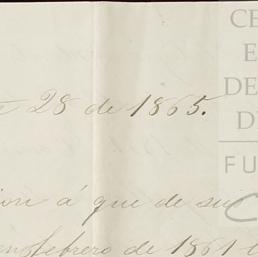 28 de 1865.
á que de su
febrero de 1861
CE
E
DE
D
FU
C